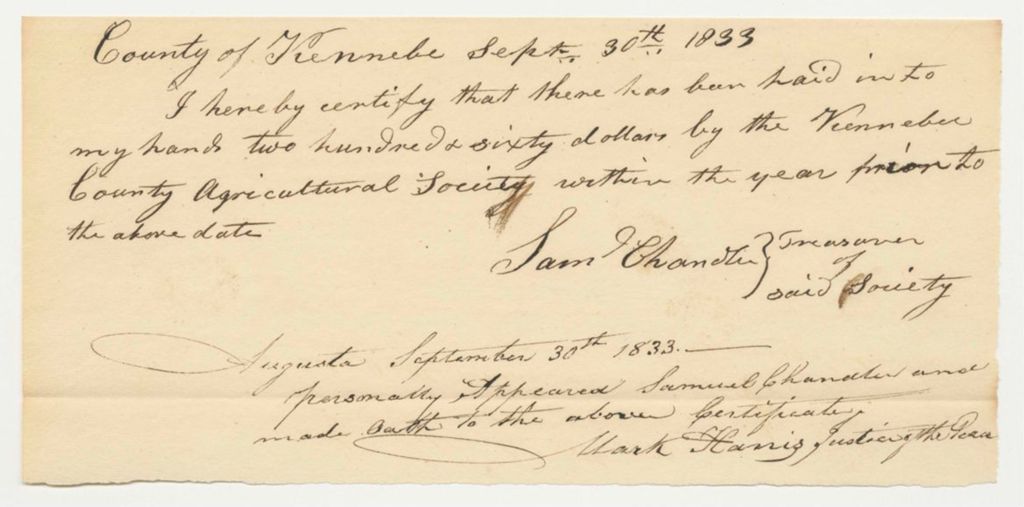 County of Kennebe Sept. 30th 1833
I hereby certify that there has been paid in to
my hands two hundred & sixty dollars by the Kennebec
County Agricultural Society within the year prior to
the above date
Saml Chandler } Treasurer
of
said Society
Augusta September 30th 1833.
personally Appeared Samuel Chandler and
made Oath to the above Certificate,
Mark Harris Justice of the Peace